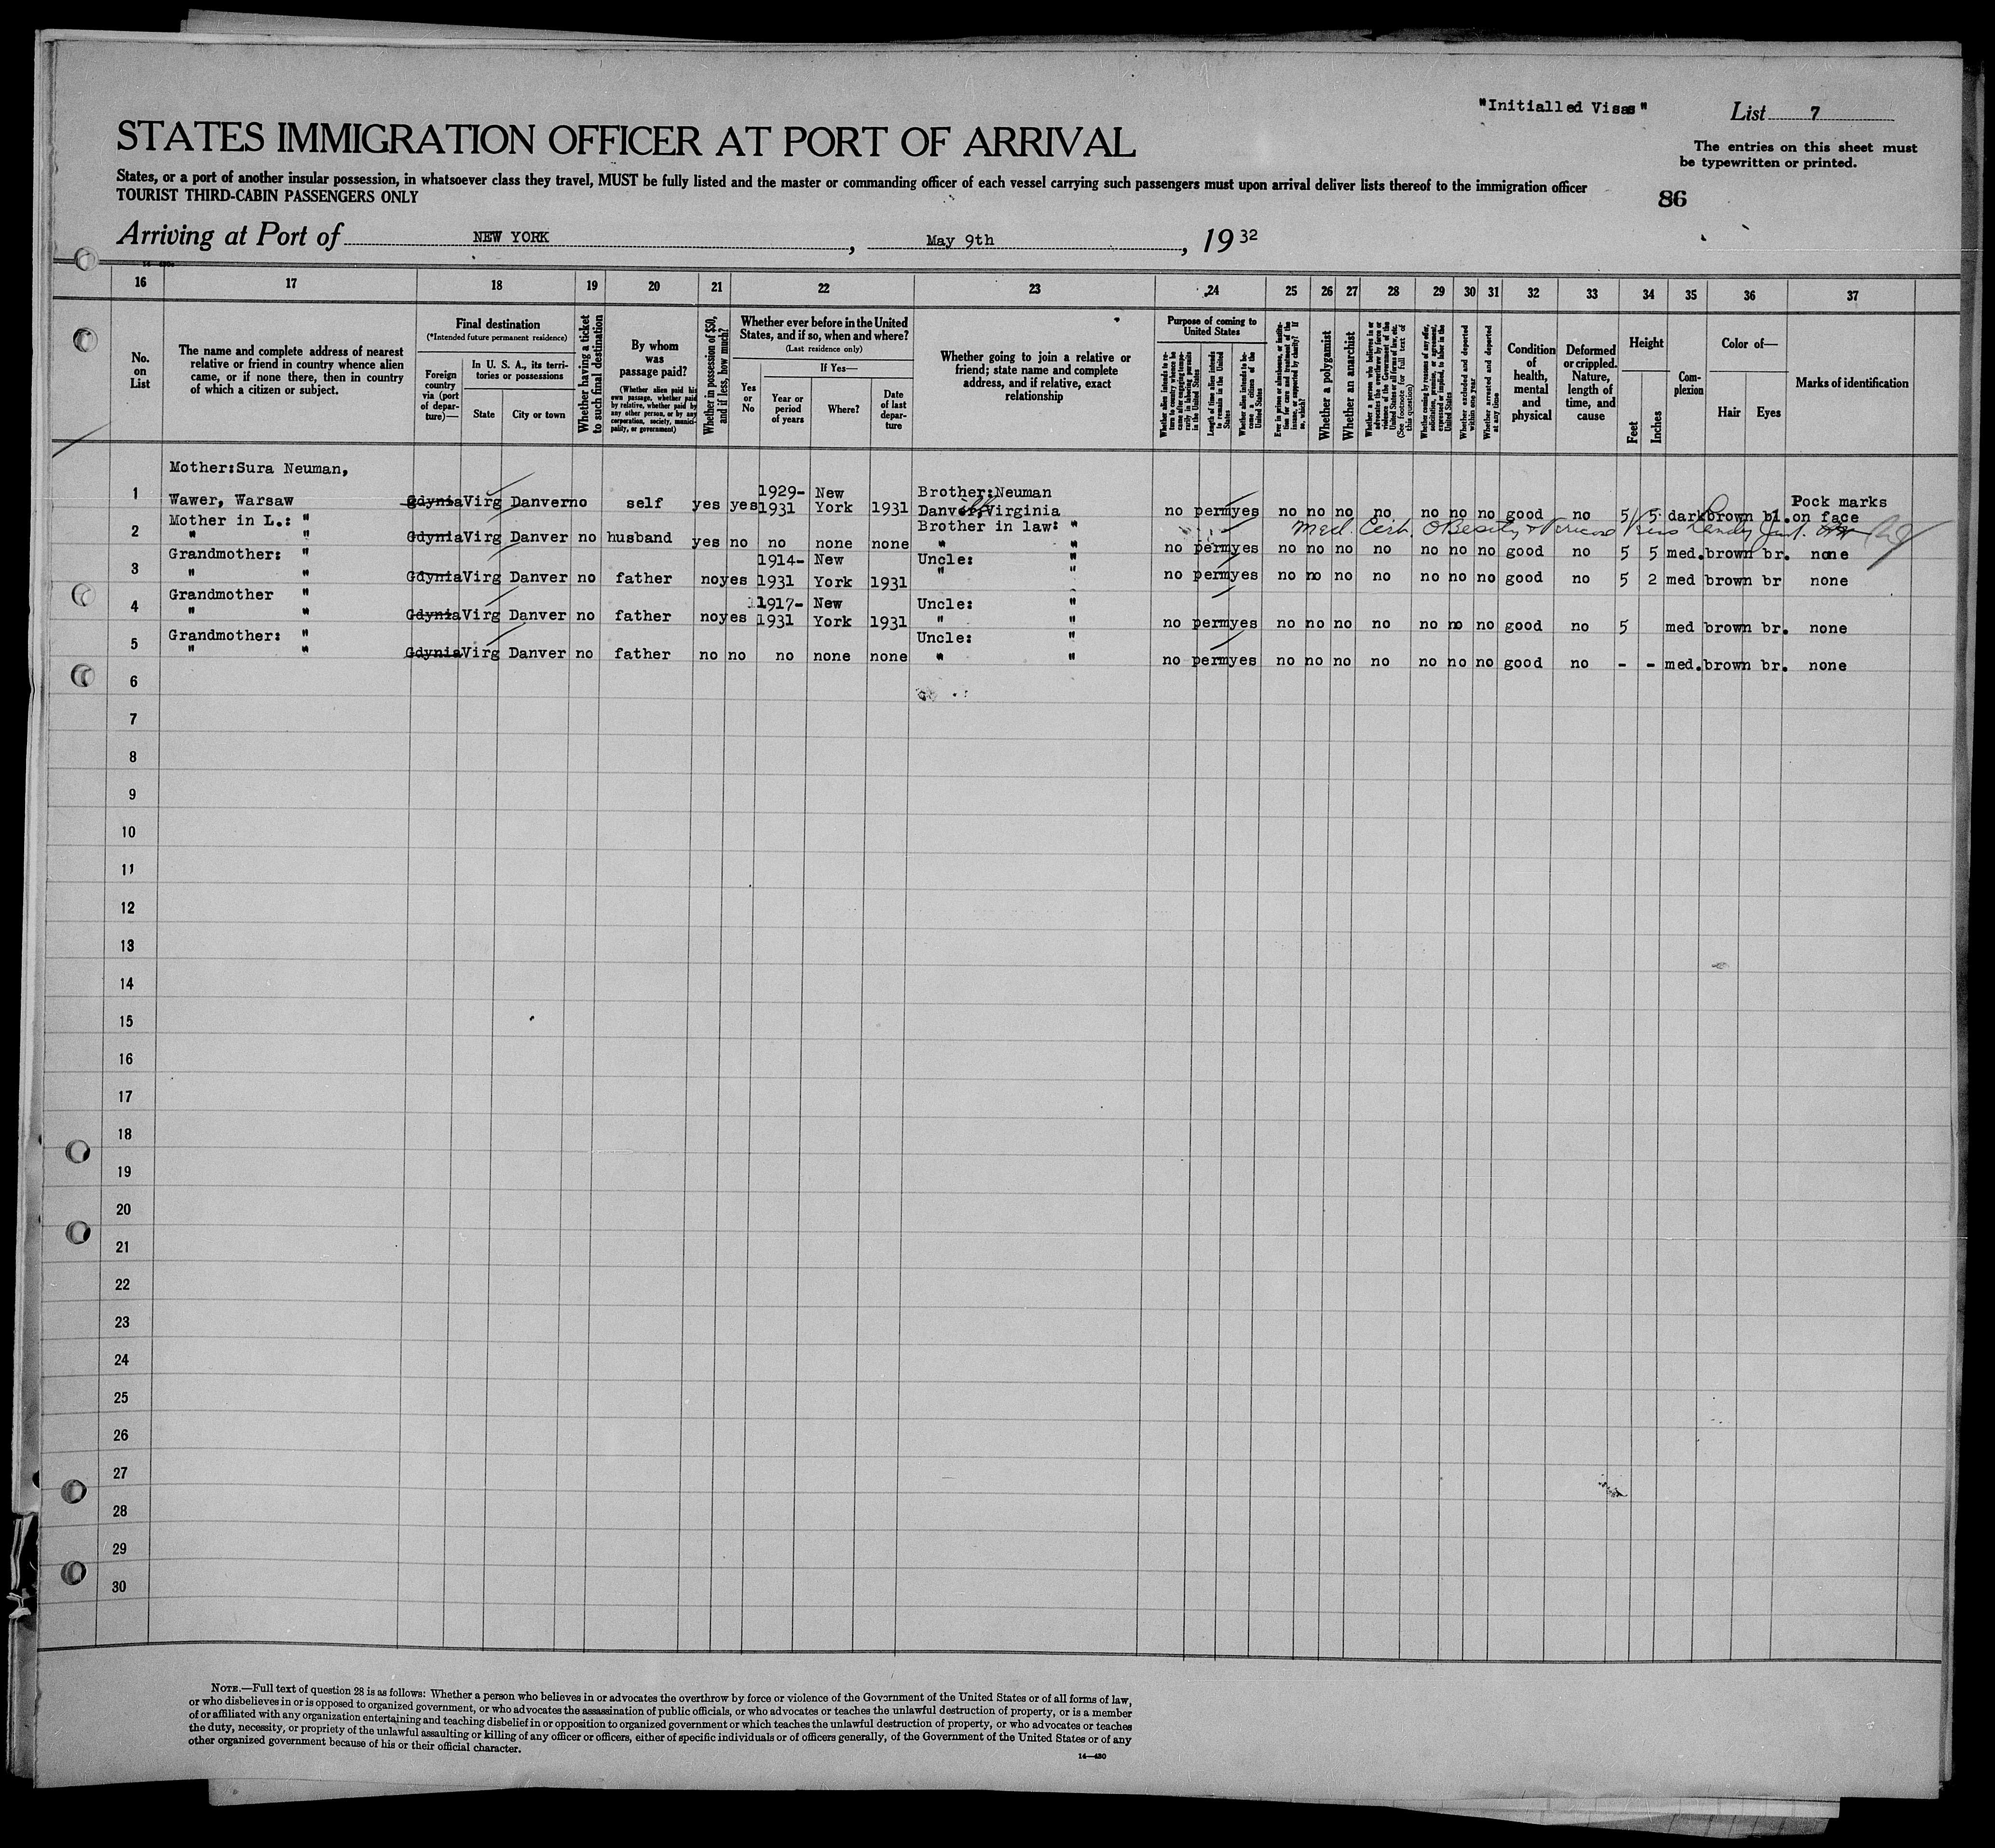 "Initialled Visas"
List 7
STATES IMMIGRATION OFFICER AT PORT OF ARRIVAL
The entries on this sheet must
be typewritten or printed.
States, or a port of another insular possession, in whatsoever class they travel, MUST be fully listed and the master or commanding officer of each vessel carrying such passengers must upon arrival deliver lists thereof to the immigration officer
TOURIST THIRD-CABIN PASSENGERS ONLY
86
Arriving at Port of NEW YORK, May 9th, 1932
16 17 18 19 20 21 22 23 24 25 26 27 28 29 30 31 32 33 34 35 36 37
No.
on
List
The name and complete address of nearest
relative or friend in country whence alien
came, or if none there, then in country
of which a citizen or subject.
Final destination
(*Intended future permanent residence)
Foreign
country
via (port
of depar-
ture)—
In U. S. A., its terri-
tories or possessions
State
City or town
Whether having a ticket
to such final destination
By whom
was
passage paid?
(Whether alien paid his
own passage, whether paid
by relative, whether paid by
any other person, or by any
corporation, society, munici-
pality, or government)
Whether in possession of $50,
and if less, how much?
Whether ever before in the United
States, and if so, when and where?
(Last residence only)
Yes
or
No
If Yes—
Year or
period
of years
Where?
Date
of last
depar-
ture
Whether going to join a relative or
friend; state name and complete
address, and if relative, exact
relationship
Purpose of coming to
United States
Whether alien intends to re-
turn to country whence he
came after engaging tempo-
rarily in laboring pursuits
in the United States
Length of time alien intends
to remain in the United
States
Whether alien intends to be-
come a citizen of the
United States
Ever in prison or almshouse, or institu-
tion for care and treatment of the
insane, or supported by charity? If
so, which?
Whether a polygamist
Whether an anarchist
Whether a person who believes in or
advocates the overthrow by force or
violence of the Government of the
United States or all forms of law, etc.
(See footnote for full text of
this question)
Whether coming by reasons of any offer,
solicitation, promise, or agreement,
expressed or implied, to labor in the
United States
Whether excluded and deported
within one year
Whether arrested and deported
at any time
Condition
of
health,
mental
and
physical
Deformed
or crippled.
Nature,
length of
time, and
cause
Height
Feet
Inches
Com-
plexion
Color of—
Hair
Eyes
Marks of identification
Mother:Sura Neuman,
1 Wawer, Warsaw Gdynia Virg Danver no self yes yes 1929-1931 New York 1931 Brother:Neuman Danver,Virginia no perm yes no no no no no no no good no 5 5 dark brown bl. Pock marks on face
Med. Cert. Obesity &
2 Mother in L.: " " " Gdynia Virg Danver no husband yes no no none none Brother in law: " " " no perm yes no no no no no no no good no 5 5 med. brown br. none
3 Grandmother: " " " Gdynia Virg Danver no father no yes 1914-1931 New York 1931 Uncle: " " " no perm yes no no no no no no no good no 5 2 med brown br none
4 Grandmother " " " Gdynia Virg Danver no father no yes 1917-1931 New York 1931 Uncle: " " " no perm yes no no no no no no no good no 5 med brown br. none
5 Grandmother: " " " Gdynia Virg Danver no father no no no none none Uncle: " " " no perm yes no no no no no no no good no - - med. brown br. none
6
7
8
9
10
11
12
13
14
15
16
17
18
19
20
21
22
23
24
25
26
27
28
29
30
NOTE.—Full text of question 28 is as follows: Whether a person who believes in or advocates the overthrow by force or violence of the Government of the United States or of all forms of law,
or who disbelieves in or is opposed to organized government, or who advocates the assassination of public officials, or who advocates or teaches the unlawful destruction of property, or is a member
of or affiliated with any organization entertaining and teaching disbelief in or opposition to organized government or which teaches the unlawful destruction of property, or who advocates or teaches
the duty, necessity, or propriety of the unlawful assaulting or killing of any officer or officers, either of specific individuals or of officers generally, of the Government of the United States or of any
other organized government because of his or their official character.
14—430